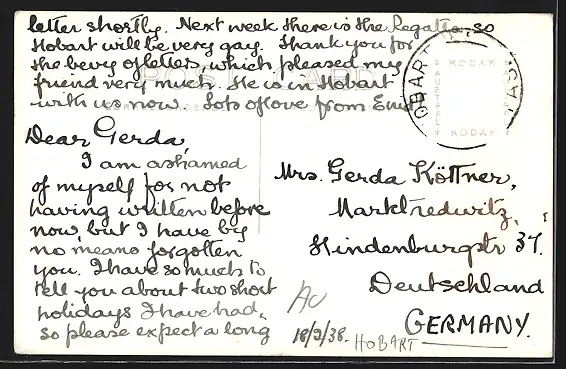 letter shortly. Next week there is the Regatta, so
Hobart will be very gay. Thank you for
the bevy of letters, which pleased my
friend very much. He is in Hobart
with us now. Lots of love from Enid
POST CARD
Dear Gerda,
I am ashamed
of myself for not
having written before
now, but I have by
no means forgotten
you. I have so much to
tell you about two short
holidays I have had,
so please expect a long
HOBART
KODAK
AUSTRAL
KODAK
Mrs. Gerda Köttner,
Marktredwitz,
Hindenburgstr 37.
Deutschland
GERMANY.
18/2/38.
HOBART